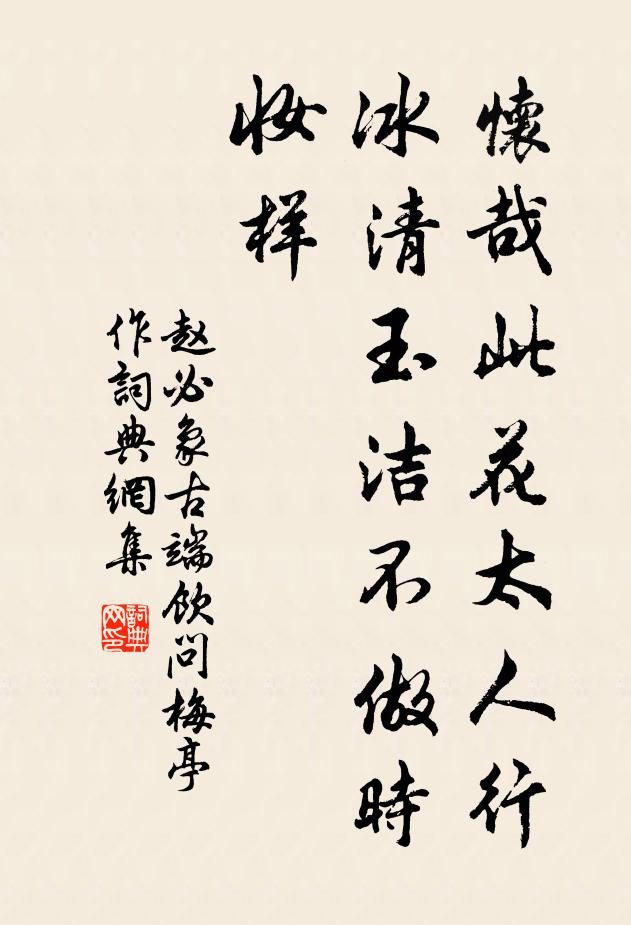 懐哉此花太人行
冰清玉洁不做時
妆样
赵必象古端飲问梅亭
作詞典網集
詞典網印